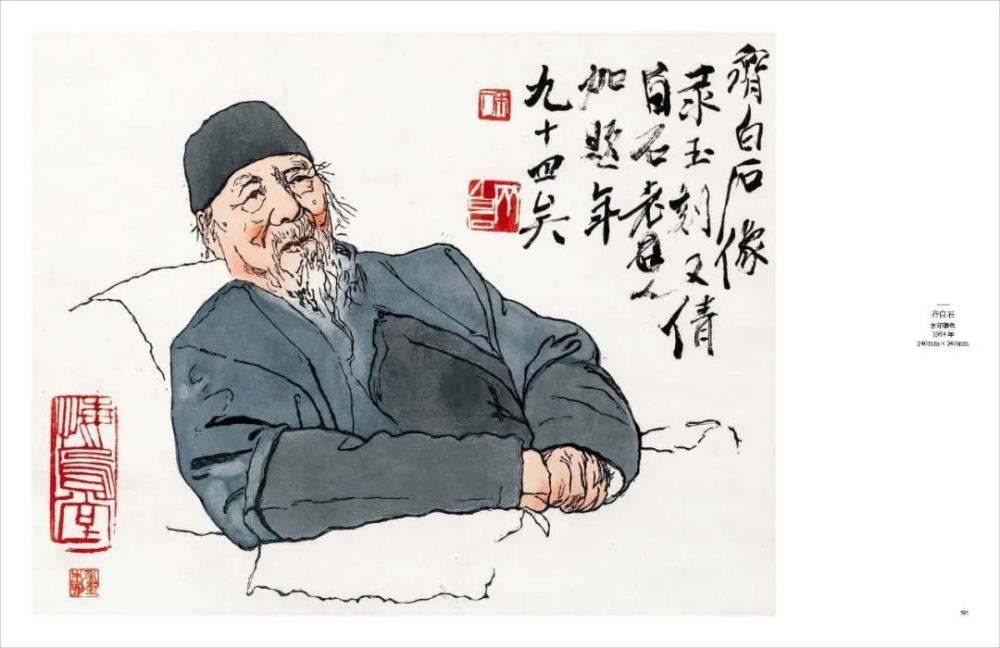 齊白石像
玉刻又倩
白石老人
加題年
九十四矣
悔烏堂
齐白石
水印套色
1954年
240mm × 340mm